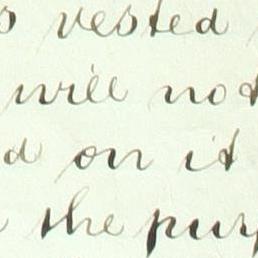 s vested
will not
d on it
the purp